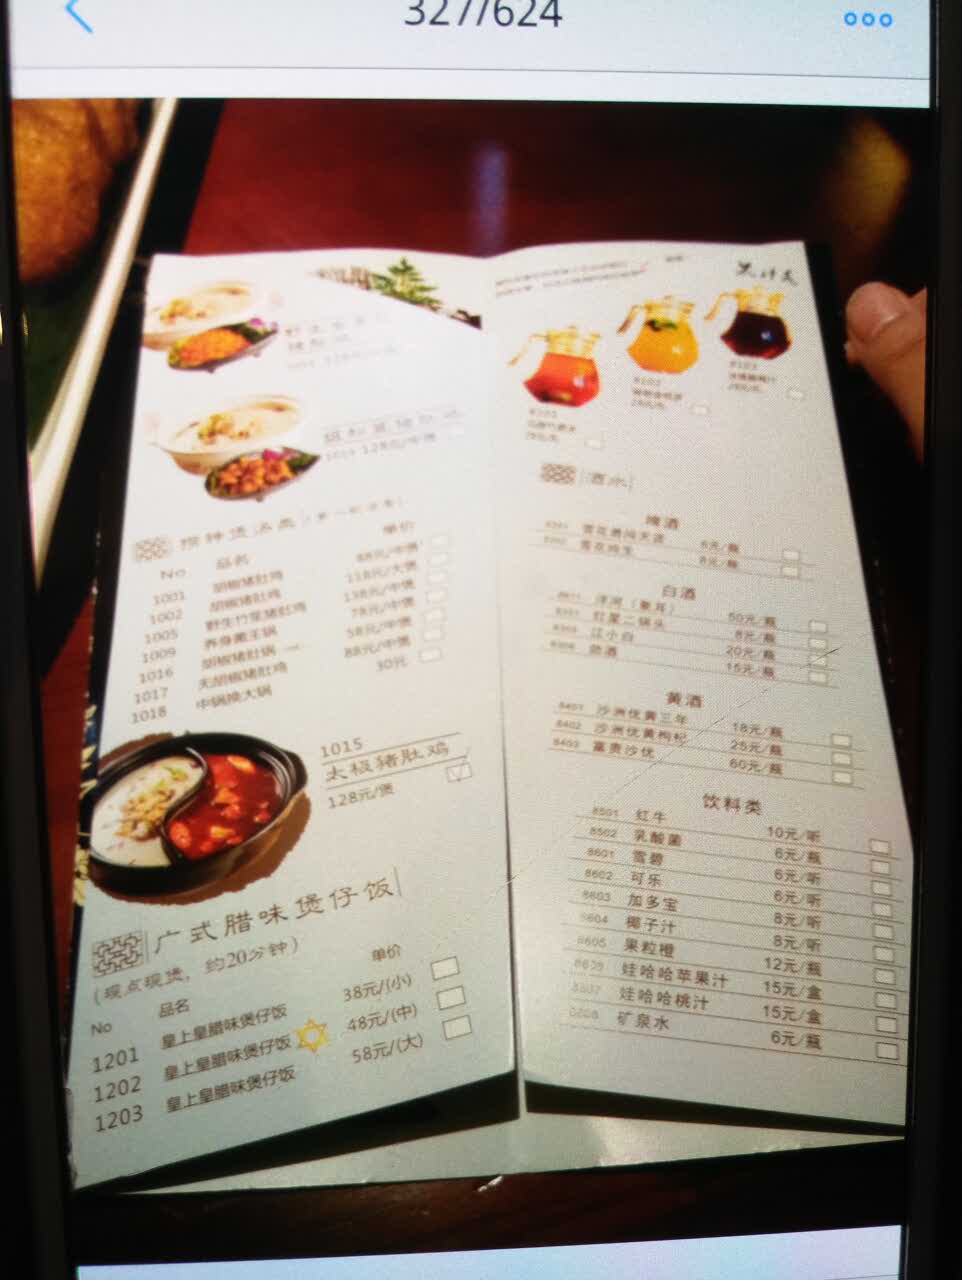 327/624
128元/中煲
No 品名 单价
1001 胡椒猪肚鸡 88元/中煲
1002 胡椒猪肚鸡 118元/大煲
1005 野生竹笙猪肚鸡 138元/中煲
1009 养身菌王锅 78元/中煲
1016 胡椒猪肚锅 58元/中煲
1017 无胡椒猪肚鸡 88元/中煲
1018 中锅换大锅 30元
1015
太极猪肚鸡
128元/煲
广式腊味煲仔饭
(现点现煲,约20分钟)
No 品名 单价
1201 皇上皇腊味煲仔饭 38元/(小)
1202 皇上皇腊味煲仔饭 48元/(中)
1203 皇上皇腊味煲仔饭 58元/(大)
酒水
啤酒
雪花勇闯天涯 6元/瓶
雪花纯生 8元/瓶
白酒
50元/瓶
红星二锅头 8元/瓶
江小白 20元/瓶
15元/瓶
黄酒
8401 沙洲优黄三年 18元/瓶
8402 沙洲优黄枸杞 25元/瓶
8403 富贵沙优 60元/瓶
饮料类
8501 红牛 10元/听
8502 乳酸菌 6元/瓶
8601 雪碧 6元/听
8602 可乐 6元/听
8603 加多宝 8元/听
8604 椰子汁 8元/听
8605 果粒橙 12元/瓶
8606 娃哈哈苹果汁 15元/盒
8607 娃哈哈桃汁 15元/盒
矿泉水 6元/瓶